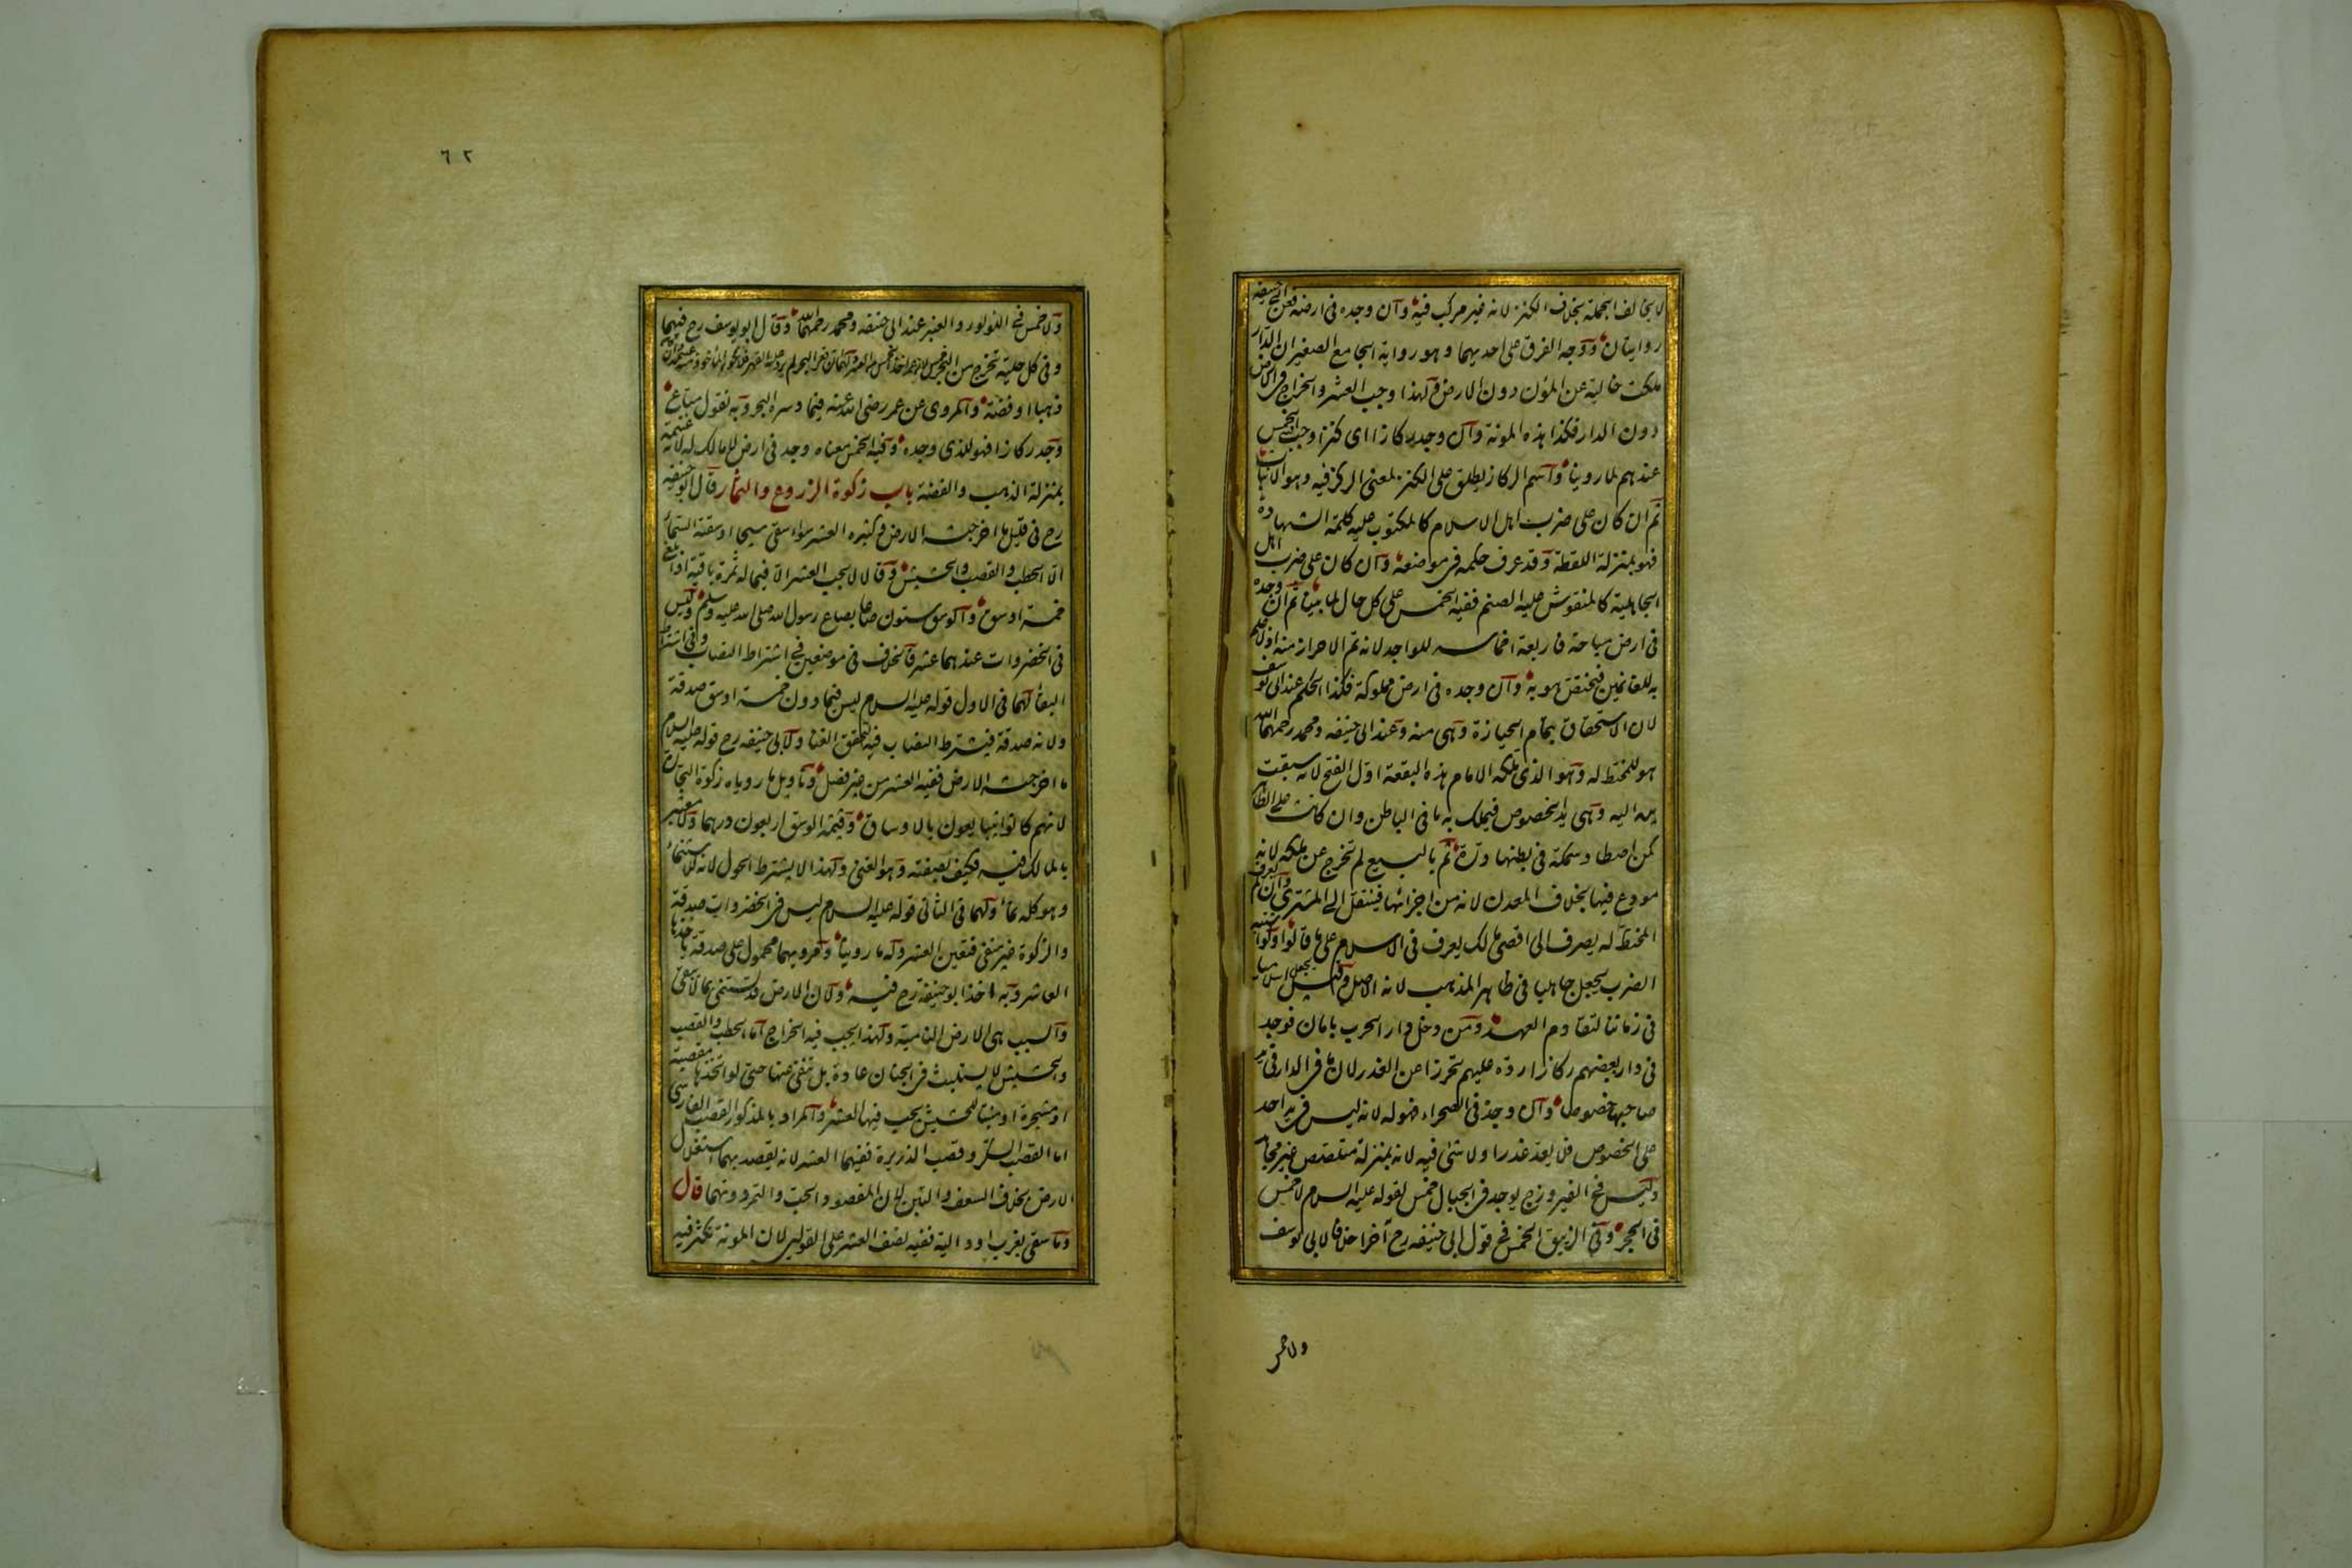 لا يخالف الجملة بخلاف الكنز لانه غير مركب فيه وان وجده في ارضه فعن ابي حنيفه
روايتان ووجه الفرق على احديهما وهو رواية الجامع الصغير ان الدار
ملكت خالية عن المؤن دون الارض ولهذا وجب العشر والخراج في الارض
دون الدار فكذا هذه المؤنة وان وجد ركازا اى كنزا وجب الخمس
عندهم لما روينا واسم الركاز يطلق على الكنز لمعنى الركز فيه وهو الاثبات
ثم ان كان على ضرب اهل الاسلام كالمكتوب عليه كلمة الشهادة
فهو بمنزلة اللقطة وقد عرف حكمه في موضعه وان كان على ضرب اهل
الجاهلية كالمنقوش عليه الصنم ففيه الخمس على كل حال لما بينا ثم ان وجده
في ارض مباحة فاربعة اخماسه للواجد لانه تم الاحراز منه اذ لا علم
به للغانمين فيختص هو به وان وجده في ارض مملوكة فكذا الحكم عند ابي يوسف
لان الاستحقاق بتمام الحيازة وهى منه وعند ابي حنيفه ومحمد رحمهما الله
هو للمختط له وهو الذى ملكه الامام هذه البقعة اول الفتح لانه سبقت
يده اليه وهى يد الخصوص فيملك به ما في الباطن وان كانت على الظاهر
كمن اصطاد سمكة في بطنها درة ثم بالبيع لم تخرج عن ملكه لانه
مودع فيها بخلاف المعدن لانه من اجزائها فينتقل الى المشترى وان لم يعرف
المختط له يصرف الى اقصى مالك يعرف في الاسلام على ما قالوا ولو اشتبه
الضرب يجعل جاهليا في ظاهر المذهب لانه الاصل وقيل يجعل اسلاميا
في زماننا لتقادم العهد ومن دخل دار الحرب بامان فوجد
في دار بعضهم ركازا رده عليهم تحرزا عن الغدر لان ما في الدار في يد
صاحبها خصوصا وان وجده في الصحراء فهو له لانه ليس في يد احد
على الخصوص فلا يعد غدرا ولا شئ فيه لانه بمنزلة متلصص غير مجاهر
وليس في الفيروزج يوجد في الجبال خمس لقوله عليه السلام لا خمس
في الحجر وفي الزيبق الخمس في قول ابي حنيفه رح آخرا خلافا لابي يوسف
ولا خمس
٦٢
ولا خمس في اللولوء والعنبر عند ابي حنيفه ومحمد رحمهما الله وقال ابو يوسف رح فيهما
وفي كل حلية تخرج من البحر خمس لان عمر اخذ الخمس من العنبر ولهما ان قعر البحر لم يرد عليه القهر فلا يكون الماخوذ منه غنيمة وان كان
ذهبا او فضة والمروى عن عمر رضى الله عنه فيما دسره البحر وبه نقول متاع
وجد ركازا فهو للذى وجده وفيه الخمس معناه وجد في ارض لا مالك لها لانه غنيمة
بمنزلة الذهب والفضة باب زكوة الزروع والثمار قال ابو حنيفه
رح في قليل ما اخرجته الارض وكثيره العشر سواء سقى سيحا او سقته السماء
الا الحطب والقصب والحشيش وقالا لا يجب العشر الا فيما له ثمرة باقية اذا بلغ
خمسة اوسق والوسق ستون صاعا بصاع رسول الله صلى الله عليه وسلم وليس
في الخضروات عندهما عشر فالخلاف في موضعين في اشتراط النصاب وفي اشتراط
البقاء لهما في الاول قوله عليه السلام ليس فيما دون خمسة اوسق صدقة
ولانه صدقة فيشترط النصاب فيه لتحقق الغنا ولابي حنيفه رح قوله عليه السلام
ما اخرجته الارض ففيه العشر من غير فصل وتاويل ما روياه زكوة التجارة
لانهم كانوا يتبايعون بالاوساق وقيمة الوسق اربعون درهما ولا معتبر
بالمالك فيه فكيف بصفته وهو الغنى ولهذا لا يشترط الحول لانه للاستنماء
وهو كله نماء ولهما في الثاني قوله عليه السلام ليس في الخضروات صدقة
والزكوة غير منفى فتعين العشر وله ما روينا ومرويهما محمول على صدقة ياخذها
العاشر وبه اخذ ابو حنيفة رح فيه ولان الارض قد تستنمى بما لا يبقى
والسبب هى الارض النامية ولهذا يجب فيه الخراج اما الحطب والقصب
والحشيش لا يستنبت في الجنان عادة بل تنقى عنها حتى لو اتخذها مقصبة
او مشجرة او منبتا للحشيش يجب فيها العشر والمراد بالمذكور القصب الفارسى
اما القصب السكر وقصب الذريرة ففيهما العشر لانه يقصد بهما استغلال
الارض بخلاف السعف والتبن لان المقصود الحب والتمر دونهما قال
وما سقى بغرب او دالية ففيه نصف العشر على القولين لان المونة تكثر فيه